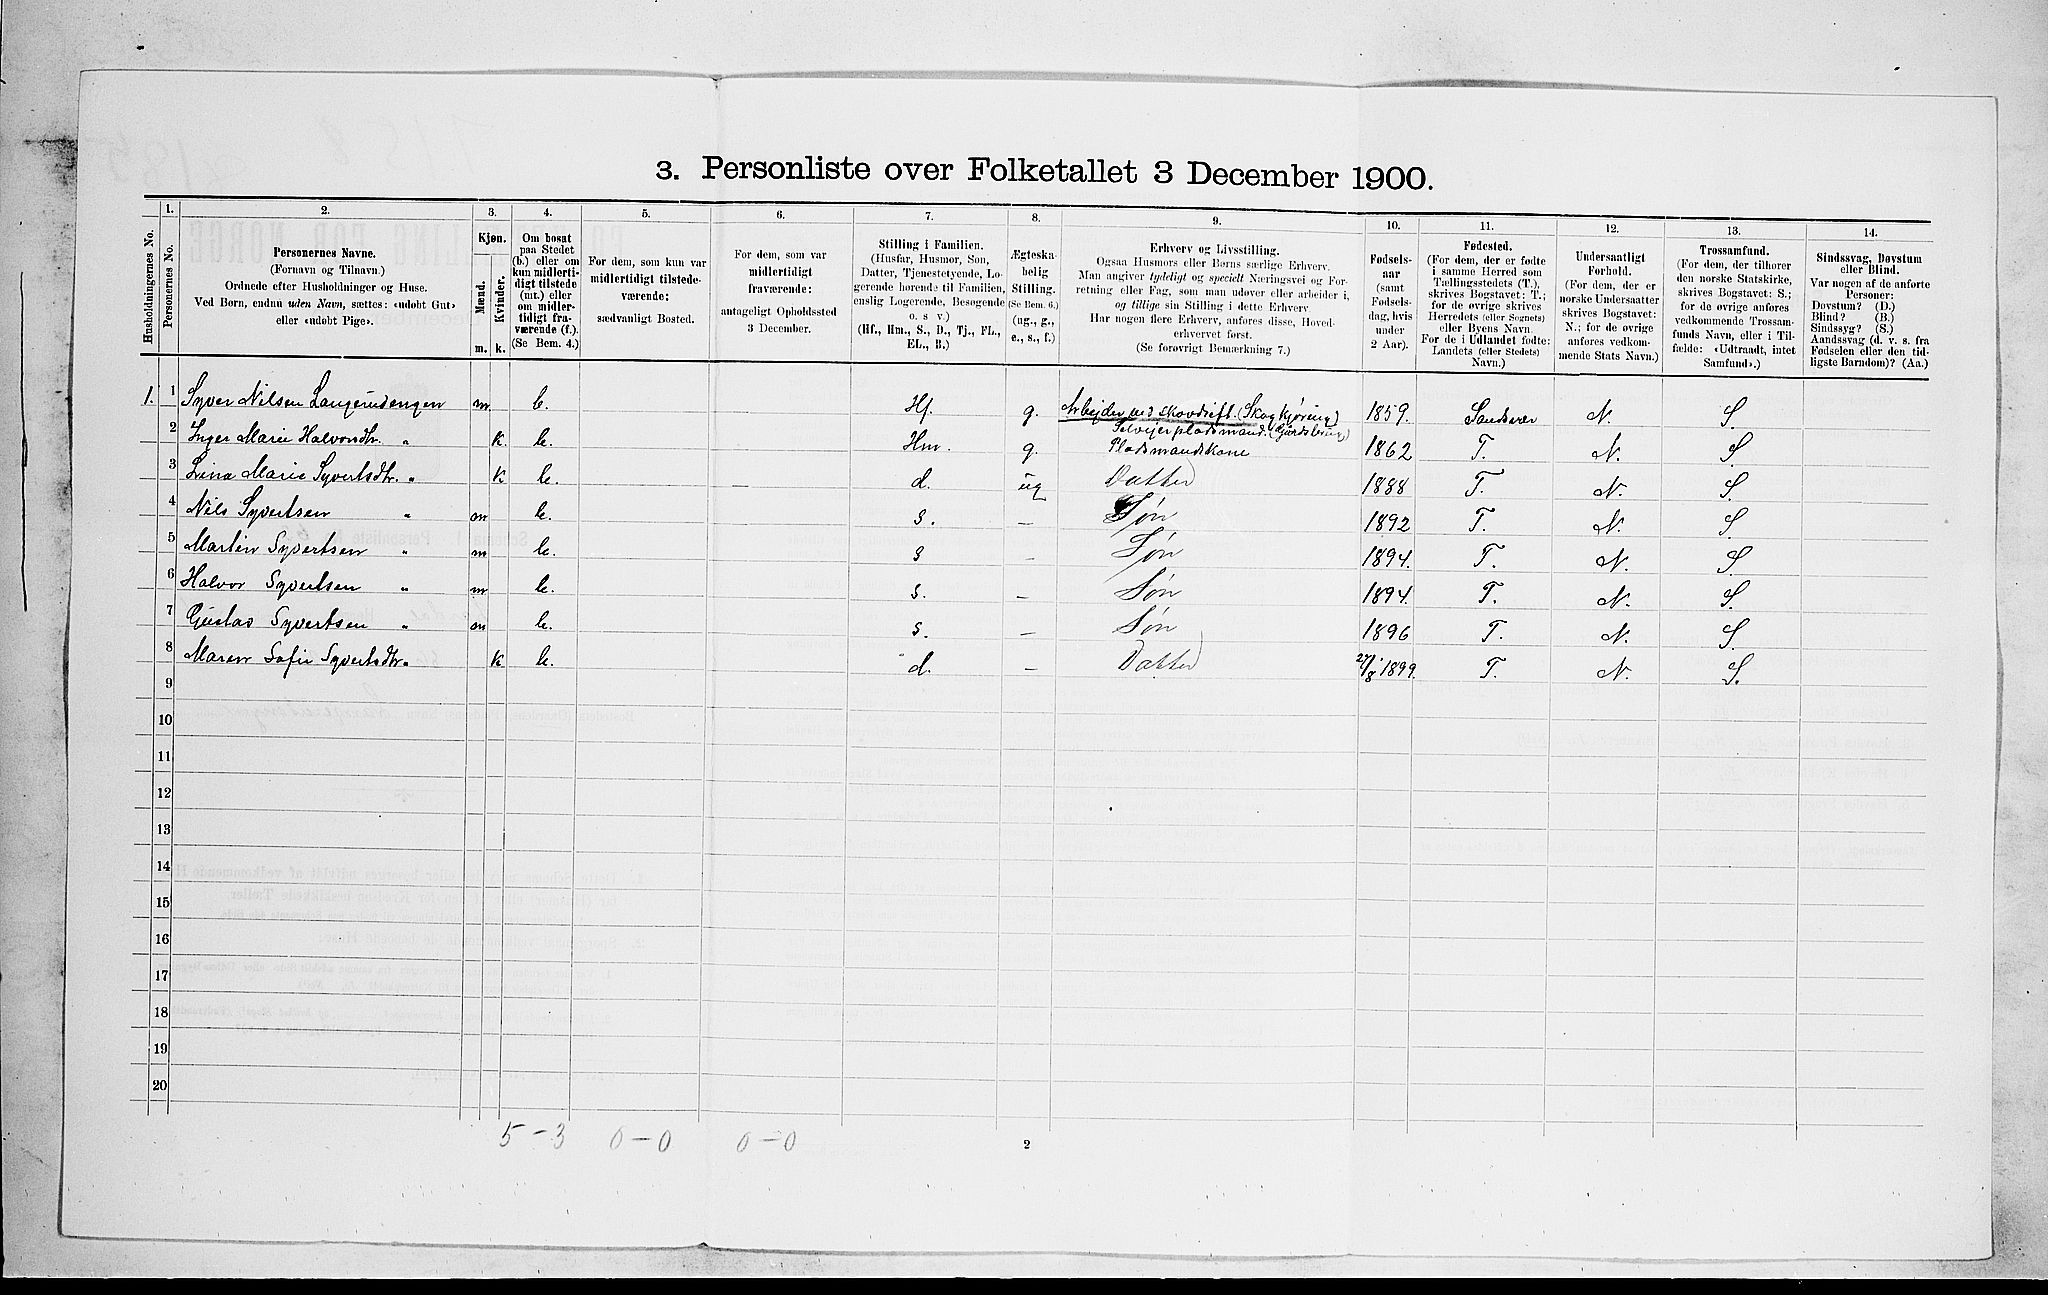 3. Personliste over Folketallet 3 December 1900.
1. 2. 3. 4. 5. 6. 7. 8. 9. 10. 11. 12. 13. 14.
Husholdningernes No.
Personernes No.
Personernes Navne.
(Fornavn og Tilnavn.)
Ordnede efter Husholdninger og Huse.
Ved Børn, endnu uden Navn, sættes: «udøbt Gut»
eller «udøbt Pige».
Kjøn.
Mænd.
Kvinder.
m. k.
Om bosat
paa Stedet
(b.) eller om
kun midlerti-
digt tilstede
(mt.) eller
om midler-
tidigt fra-
værende (f.).
(Se Bem. 4.)
For dem, som kun var
midlertidigt tilstede-
værende:
sædvanligt Bosted.
For dem, som var
midlertidigt
fraværende:
antageligt Opholdssted
3 December.
Stilling i Familien.
(Husfar, Husmor, Søn,
Datter, Tjenestetyende, Lo-
gerende hørende til Familien,
enslig Logerende, Besøgende
o. s. v.)
(Hf., Hm., S., D., Tj., FL.,
EL., B.)
Ægteska-
belig
Stilling.
(Se Bem. 6.)
(ug., g.,
e., s., f.)
Erhverv og Livsstilling.
Ogsaa Husmors eller Børns særlige Erhverv.
Man angiver tydeligt og specielt Næringsvei og For-
retning eller Fag, som man udøver eller arbeider i,
og tillige sin Stilling i dette Erhverv.
Har nogen flere Erhverv, anføres disse, Hoved-
erhvervet først.
(Se forøvrigt Bemærkning 7.)
Fødsels-
aar
(samt
Fødsels-
dag, hvis
under
2 Aar).
Fødested.
(For dem, der er fødte
i samme Herred som
Tællingsstedets (T.),
skrives Bogstavet: T.;
for de øvrige skrives
Herredets (eller Sognets)
eller Byens Navn.
For de i Udlandet fødte:
Landets (eller Stedets)
Navn.)
Undersaatligt
Forhold.
(For dem, der er
norske Undersaatter
skrives Bogstavet:
N.; for de øvrige
anføres vedkom-
mende Stats Navn.)
Trossamfund.
(For dem, der tilhører
den norske Statskirke,
skrives Bogstavet: S.;
for de øvrige anføres
vedkommende Trossam-
funds Navn, eller i Til-
fælde: «Udtraadt, intet
Samfund».)
Sindssvag, Døvstum
eller Blind.
Var nogen af de anførte
Personer:
Døvstum? (D.)
Blind? (B.)
Sindssyg? (S.)
Aandssvag (d. v. s. fra
Fødselen eller den tid-
ligste Barndom)? (Aa.)
1. 1 Syver Nilsen Langerudengen m. b. Hf. g. Arbejder ved skovdrift. (Skogkjøring) 1859. Sandsvær N. S.
Selveierpladsmand. (Gjardsbrug)
2 Inger Marie Halvorsdtr. " k. b. Hm. g. Pladsmandskone 1862 T. N. S.
3 Lina Marie Syvertsdtr. " k b. d. ug Datter 1888 T. N. S.
4 Nils Syvertsen " m b. s. — Søn 1892 T. N. S.
5 Martin Syvertsen " m b. s — Søn 1894. T. N. S.
6 Halvor Syvertsen " m b. s. — Søn 1894. T. N. S.
7 Gustav Syvertsen " m b. s. — Søn 1896 T. N. S.
8 Maren Sofie Syvertsdtr. " k b. d. — Datter 27/8 1899. T. N. S.
9
10
11
12
13
14
15
16
17
18
19
20
5 – 3 0 – 0 0 – 0
2